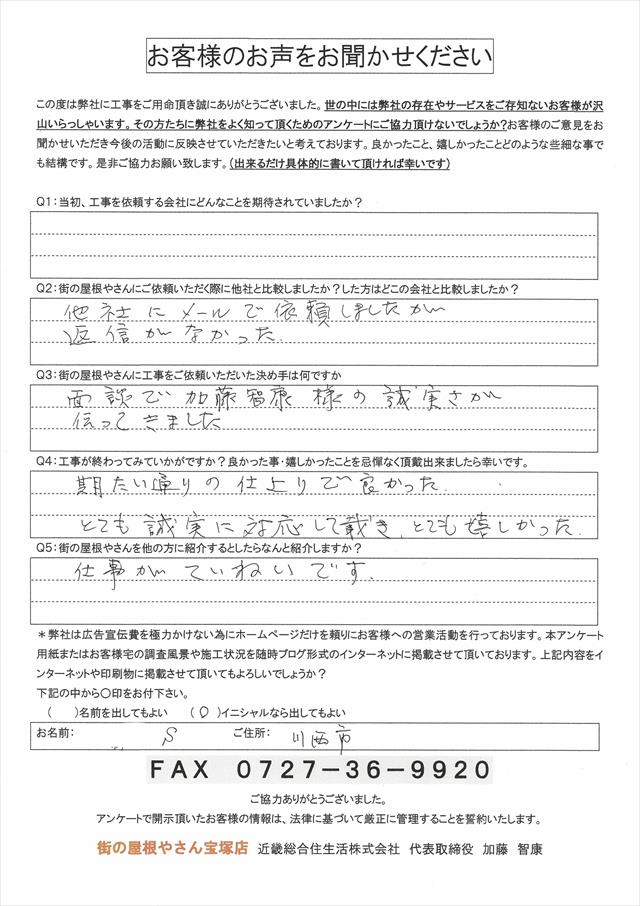 お客様のお声をお聞かせください
この度は弊社に工事をご用命頂き誠にありがとうございました。世の中には弊社の存在やサービスをご存知ないお客様が沢
山いらっしゃいます。その方たちに弊社をよく知って頂くためのアンケートにご協力頂けないでしょうか?お客様のご意見をお
聞かせいただき今後の活動に反映させていただきたいと考えております。良かったこと、嬉しかったことどのような些細な事で
も結構です。是非ご協力お願い致します。(出来るだけ具体的に書いて頂ければ幸いです)
Q1:当初、工事を依頼する会社にどんなことを期待されていましたか?
Q2:街の屋根やさんにご依頼いただく際に他社と比較しましたか?した方はどこの会社と比較しましたか?
他社にメールで依頼しましたが
返信がなかった.
Q3:街の屋根やさんに工事をご依頼いただいた決め手は何ですか
面談で加藤智康様の誠実さが
伝ってきました
Q4:工事が終わってみていかがですか?良かった事・嬉しかったことを忌憚なく頂戴出来ましたら幸いです。
期たい通りの仕上りで良かった.
とても誠実に対応して戴き、とても嬉しかった.
Q5:街の屋根やさんを他の方に紹介するとしたらなんと紹介しますか?
仕事がていねいです.
*弊社は広告宣伝費を極力かけない為にホームページだけを頼りにお客様への営業活動を行っております。本アンケート
用紙またはお客様宅の調査風景や施工状況を随時ブログ形式のインターネットに掲載させて頂いております。上記内容をイ
ンターネットや印刷物に掲載させて頂いてもよろしいでしょうか?
下記の中から○印をお付下さい。
( )名前を出してもよい (○)イニシャルなら出してもよい
お名前: S ご住所: 川西市
FAX 0727-36-9920
ご協力ありがとうございました。
アンケートで開示頂いたお客様の情報は、法律に基づいて厳正に管理することを誓約いたします。
街の屋根やさん宝塚店 近畿総合住生活株式会社 代表取締役 加藤 智康